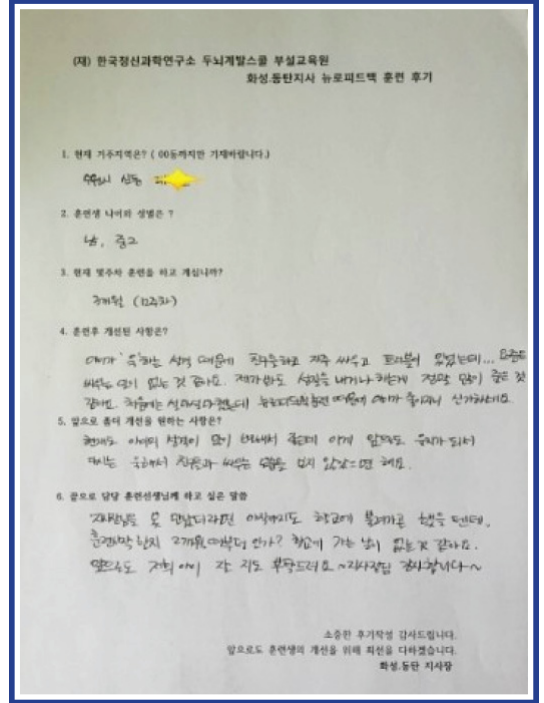 (재) 한국정신과학연구소 두뇌계발스쿨 부설교육원
화성.동탄지사 뉴로피드백 훈련 후기
1. 현재 거주지역은? ( 00동까지만 기재바랍니다.)
수원시 신동
2. 훈련생 나이와 성별은 ?
남, 중2
3. 현재 몇주차 훈련을 하고 계십니까?
3개월 (12주차)
4. 훈련후 개선된 사항은?
아이가 '욱'하는 성격 때문에 친구들하고 자주 싸우고 트러블이 있었는데... 요즘은
싸우는 일이 없는 것 같아요. 제가 봐도 성질을 내거나 하는게 정말 많이 줄은 것
같아요. 처음에는 했는데 뉴로피드백훈련 때문에 아이가 신기하네요.
5. 앞으로 좀더 개선을 원하는 사항은?
현재도 아이의 성격이 많이 변해서 좋은데 이게 앞으로도 유지가 되서
다시는 욱해서 친구들과 싸우는 모습을 보지 않았으면 해요.
6. 끝으로 담당 훈련선생님께 하고 싶은 말씀
지사장님을 못 만났더라면 아직까지도 학교에 불려가곤 했을 텐데,
훈련시작한지 2개월때부터 인가? 학교에 가는 날이 없는 것 같아요.
앞으로도 저희 아이 잘 지도 부탁드려요 ~지사장님 감사합니다~
소중한 후기작성 감사드립니다.
앞으로도 훈련생의 개선을 위해 최선을 다하겠습니다.
화성.동탄 지사장